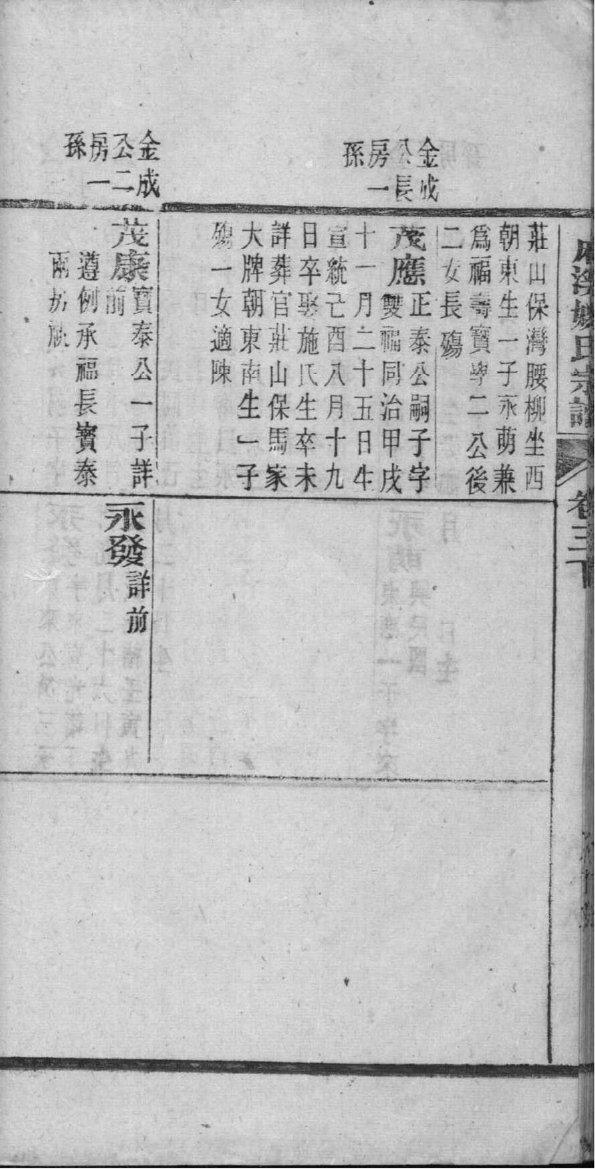 氏宗譜
卷三下
金成
公長
房一
孫
莊山保灣腰柳坐西
朝東生一子永萌兼
爲福壽寶學二公後
二女長殤
茂應正泰公嗣子字
雙福同治甲戌
十一月二十五日生
宣統己酉八月十九
日卒娶施氏生卒未
詳葬官莊山保馬家
大牌朝東南生一子
殤一女適陳
金成
公二
房一
孫
茂康寶泰公一子詳
前
遵例承福長寶泰
兩房
永發詳前